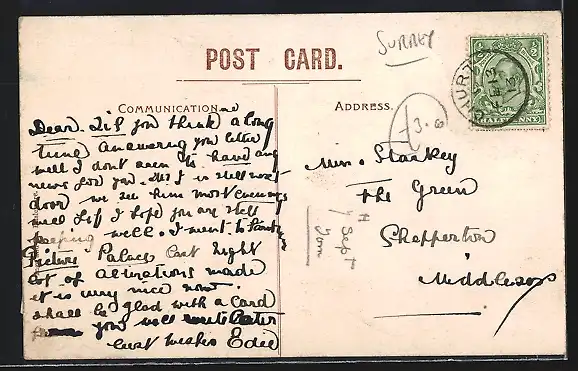 SURREY
POST CARD.
COMMUNICATION
ADDRESS.
Dear Lil you think a long
time answering you letter
well I don't seem to have any
news for you. Mr J is still next
door we see him most evenings
well Lil I hope you are still
keeping well. I went to
Picture Palace last night
lot of alterations made
it is very nice now.
shall be glad with a card
from you will write later
best wishes Edie
£3.0
Miss. Starkey
The Green
Shepperton
Middlesex
7 Sept
HURST
HALFPENNY